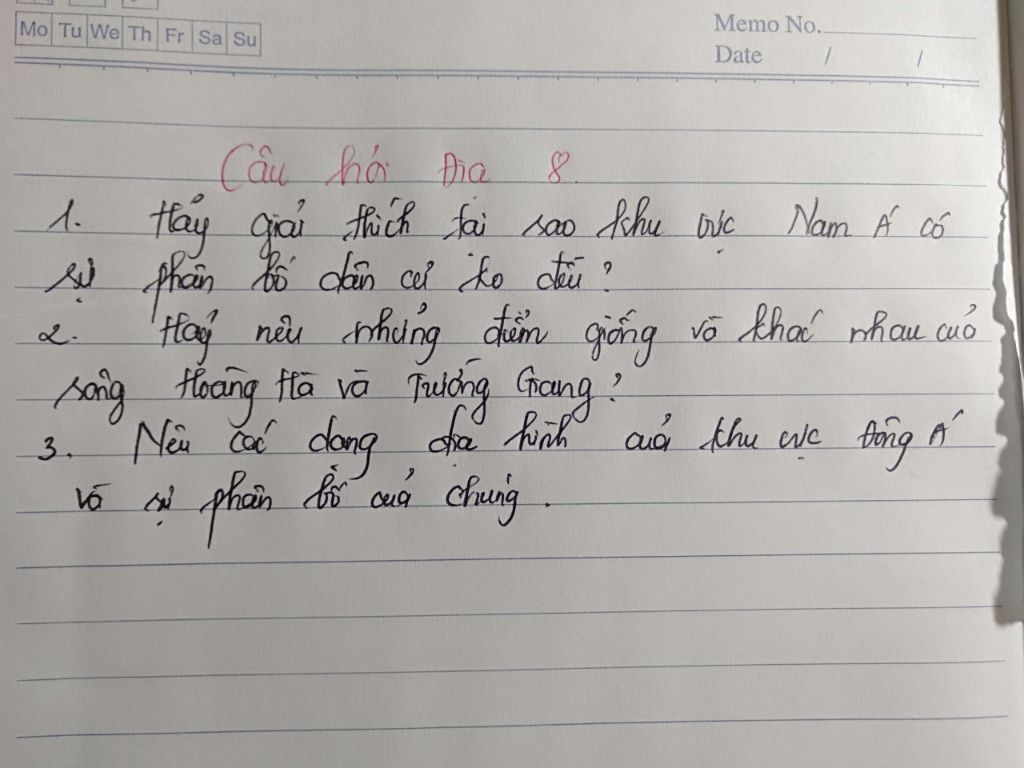 Mo Tu We Th Fr Sa Su
Memo No.
Date / /
Câu hỏi Địa 8
1. Hãy giải thích tại sao khu vực Nam Á có
sự phân bố dân cư ko đều?
2. Hãy nêu những điểm giống và khác nhau của
sông Hoàng Hà và Trường Giang?
3. Nêu các dạng địa hình của khu vực Đông Á
và sự phân bố của chúng.